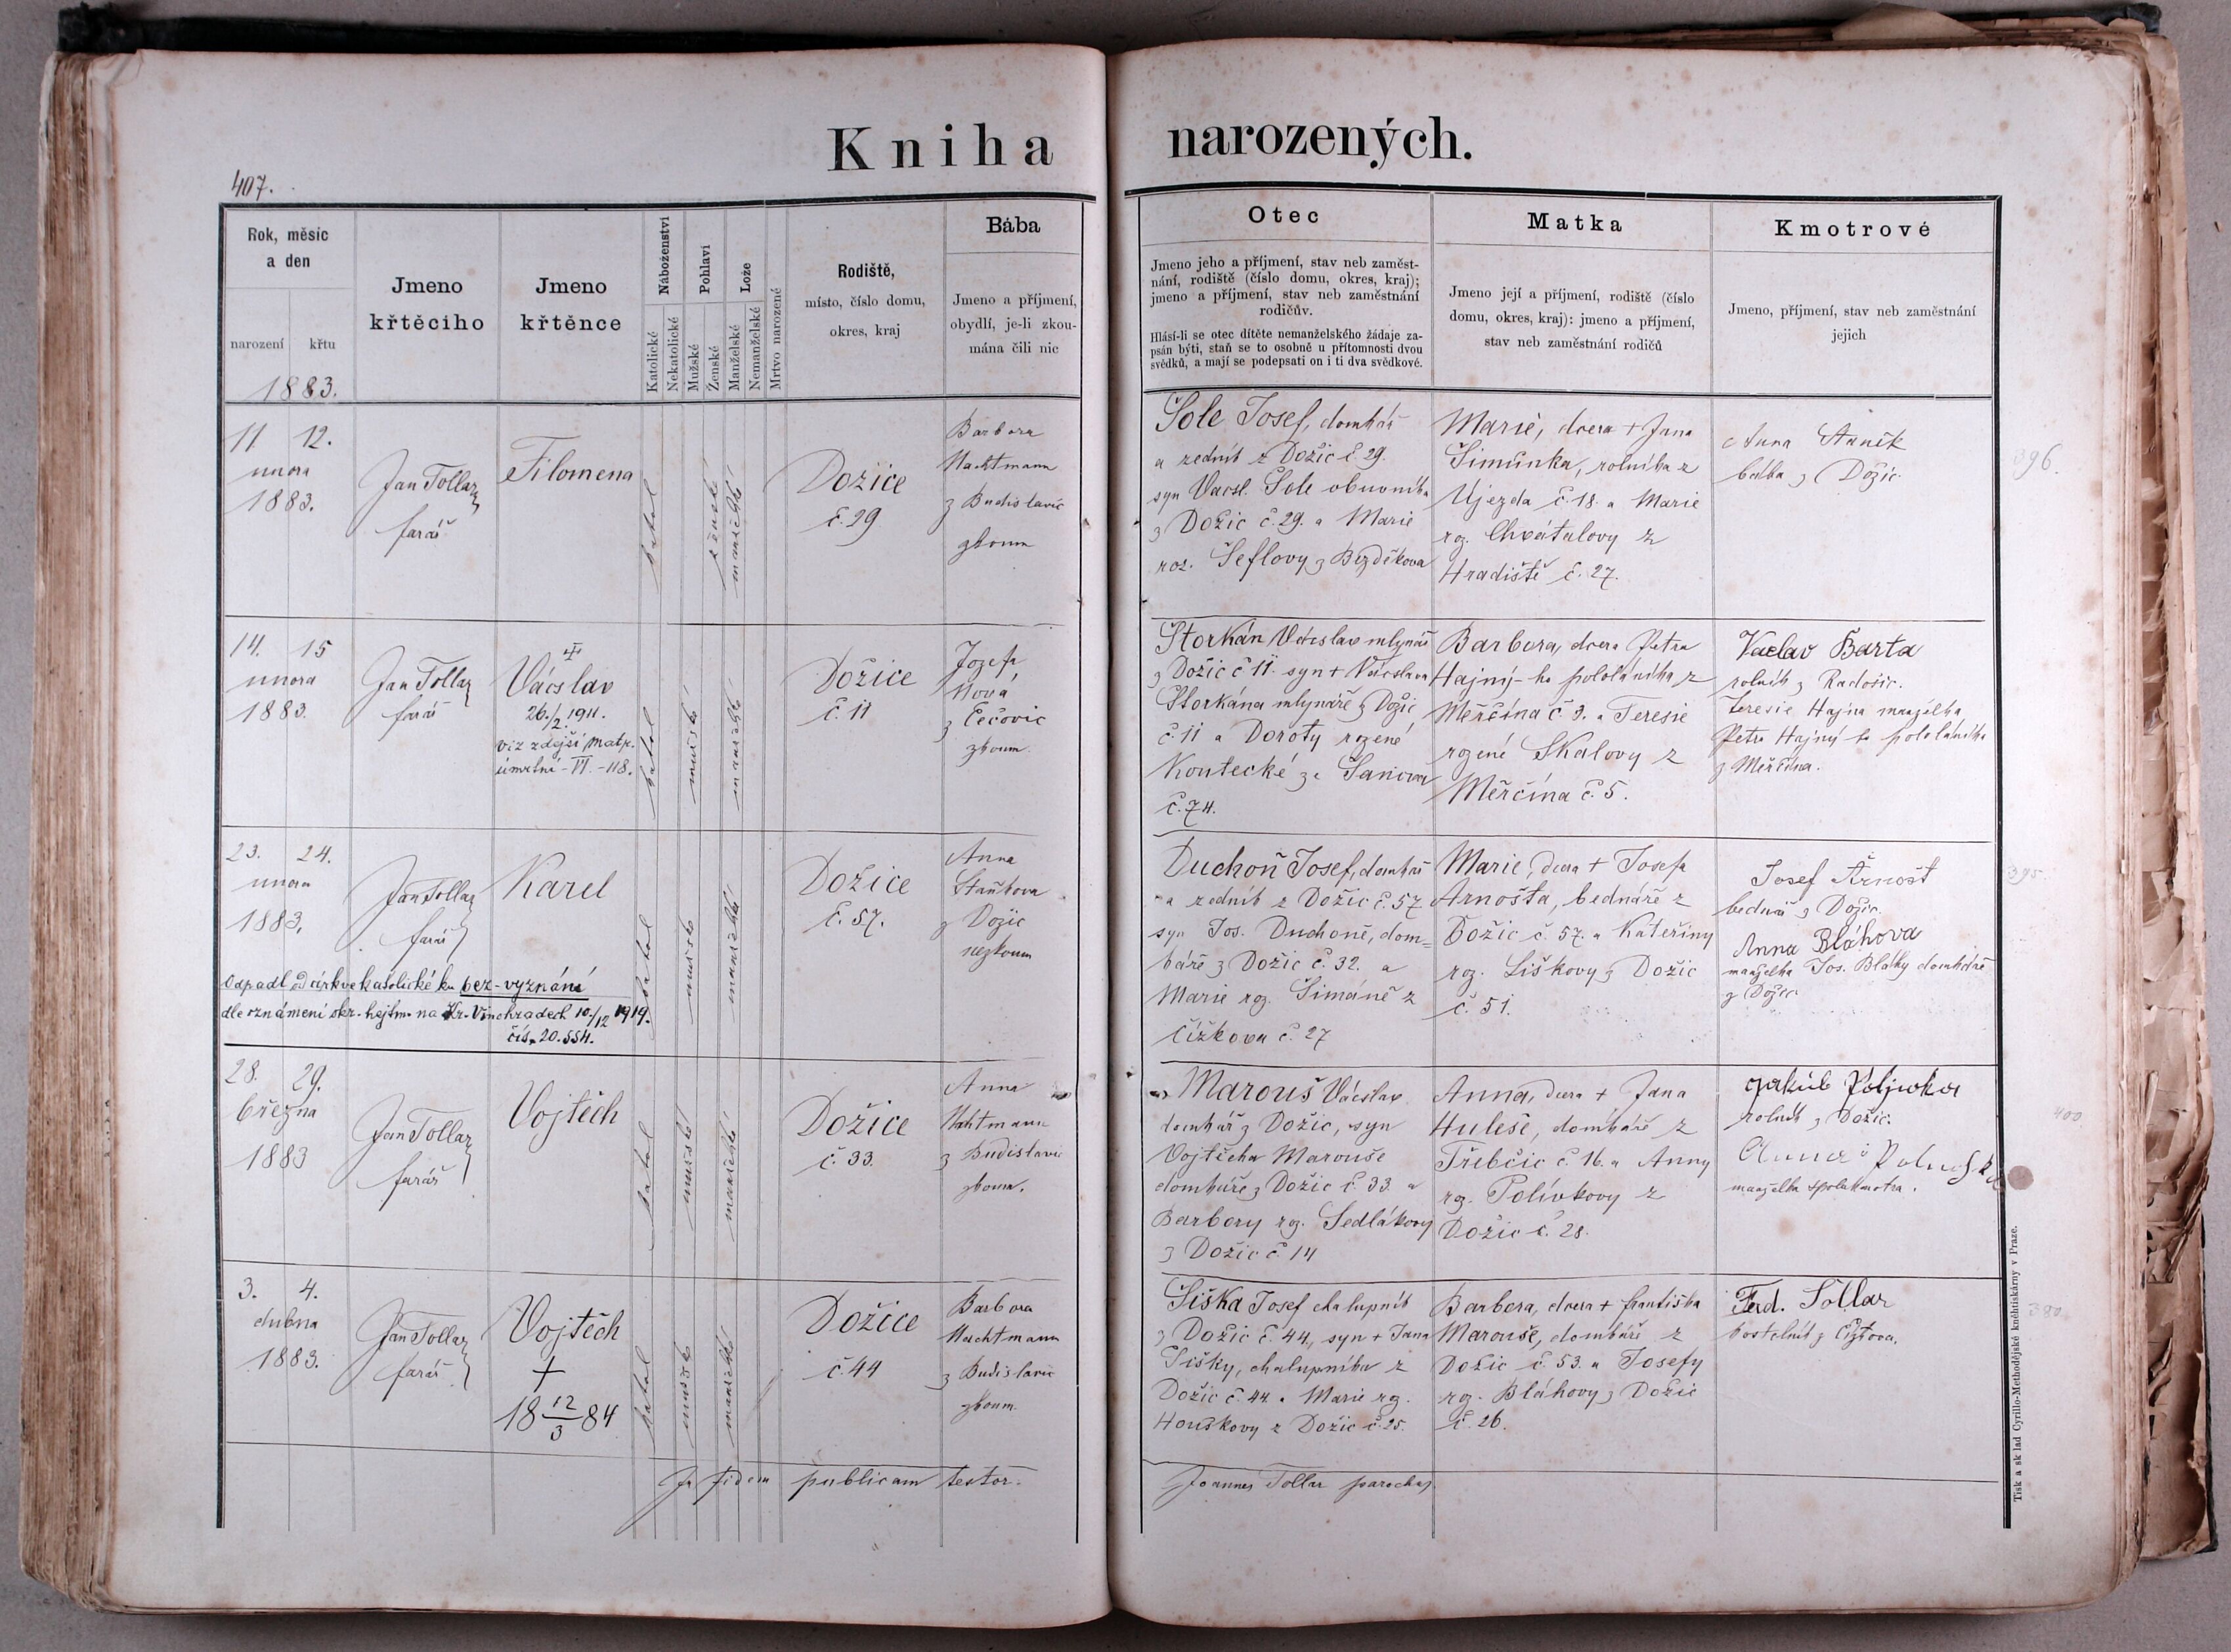 Kniha narozených.
407.
Rok, měsíc
a den
narození
křtu
1883.
Jmeno
křtěcího
Jmeno
křtěnce
Náboženství
Katolické
Nekatolické
Pohlaví
Mužské
Ženské
Lože
Manželské
Nemanželské
Mrtvo narozené
Rodiště,
místo, číslo domu,
okres, kraj
Bába
Jmeno a příjmení,
obydlí, je-li zkou-
mána čili nic
Otec
Jmeno jeho a příjmení, stav neb zaměst-
nání, rodiště (číslo domu, okres, kraj);
jmeno a příjmení, stav neb zaměstnání
rodičův.
Hlásí-li se otec dítěte nemanželského žádaje za-
psán býti, staň se to osobně u přítomnosti dvou
svědků, a mají se podepsati on i ti dva svědkové.
Matka
Jmeno její a příjmení, rodiště (číslo
domu, okres, kraj): jmeno a příjmení,
stav neb zaměstnání rodičů
Kmotrové
Jmeno, příjmení, stav neb zaměstnání
jejich
11 12.
unora
1883.
Jan Tollar
farář
Filomena
katol
ženské
manželké
Dožice
č. 29
Barbora
Nachtmann
z Budislavic
zkoum
Šole Josef, domkář
a zedník z Dožic č 29.
syn Vacsl. Šole obuvníka
z Dožic č. 29. a Marie
roz. Šeflovy z Bezděkova
Marie, dcera + Jana
Šimůnka, rolníka z
Újezda č. 18. a Marie
rz. Chvátalovy z
Hradiště č. 27.
Anna Staněk
bába z Dožic.
396.
14. 15
unora
1883.
Jan Tollar
farář
Vácslav
26./2. 1911.
viz zdejší matr.
úmrtní - VI. - 118.
katol
mužské
manželké
Dožice
č. 11
Jozefa
Nová
z Čečovic
zkoum.
Štorkán Vácslav mlynář
z Dožic č 11. syn + Vácslava
Štorkána mlynáře z Dožic
č. 11 a Doroty rozené
Koutecké ze Šanova
č. 74.
Barbora, dcera Petra
Hajný-ho pololáníka z
Měrčína č. 3. a Teresie
rozené Skalovy z
Měřčína č. 5.
Vaclav Barta
rolník z Radošic.
Teresie Hajna manželka
Petra Hajný-ho pololáníka
z Měřčína.
23. 24.
unora
1883.
Jan Tollar
farář
Karel
katol
mužské
manželké
Dožice
č. 57.
Anna
Staňkova
z Dožic
nezkoum
Odpadl od církve katolické ku bez-vyznání
dle oznámení okr. hejtm. na Kr. Vinohradech 10./12 1919.
čís. 20.554.
Duchoň Josef, domkář
a zedník z Dožic č. 57
syn Jos. Duchoně, dom-
káře z Dožic č. 32. a
Marie rz. Šimáně z
Čížkova č. 27
Marie, dcera + Josefa
Arnošta, bednáře z
Dožic č. 57. a Kateřiny
rz. Liškovy z Dožic
č. 51.
Josef Arnošt
bednář z Dožic.
Anna Bláhova
manželka Jos. Blahy domkáře
z Dožic.
395.
28. 29.
března
1883
Jan Tollar
farář
Vojtěch
katol
mužské
manželké
Dožice
č. 33.
Anna
Nachtmann
z Budislavic
zkoum.
Marouš Vácslav
domkář z Dožic, syn
Vojtěcha Marouše
domkáře z Dožic č. 33. a
Barbory rz. Sedlákovy
z Dožic č. 14
Anna, dcera + Jana
Huleše, domkáře z
Třebčic č. 16. a Anny
rz. Polívkovy z
Dožic č. 28.
Jakub Poljvka
rolník z Dožic.
Anna
manželka spolukmotra.
400
3. 4.
dubna
1883.
Jan Tollar
farář
Vojtěch
+
18 12/3 84
katol
mužské
manželké
Dožice
č. 44
Barbora
Nachtmann
z Budislavic
zkoum.
Šiška Josef chalupník
z Dožic č. 44, syn + Jana
Šišky, chalupníka z
Dožic č. 44. a Marie rz.
Houškovy z Dožic č. 25.
Barbora, dcera + Františka
Marouše, domkáře z
Dožic č. 53. a Josefy
rz. Bláhovy z Dožic
č. 26.
Ferd. Tollar
kostelník z Čížkova.
380.
In fidem publicam testor.
Joannes Tollar parochus
Tisk a sklad Cyrillo-Methodějské knihtiskárny v Praze.